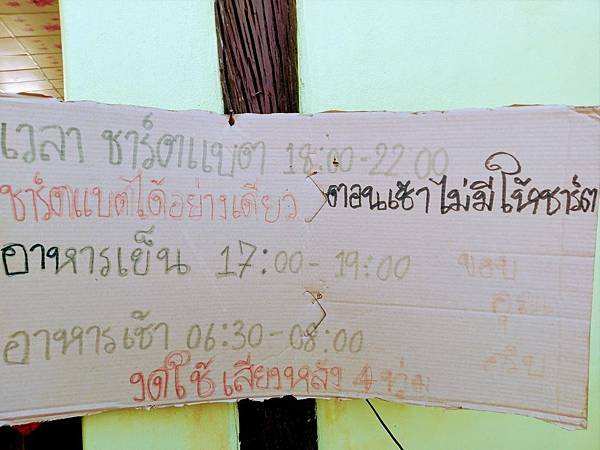 เวลา ชาร์ตแบต 18:00-22 00
ชาร์ตแบตได้อย่างเดียว ตอนเช้าไม่มีให้ชาร์ต
อาหารเย็น 17:00-19:00 ขอบ
คุณ
อาหารเช้า 06:30-08:00 ครับ
งดใช้เสียงหลัง 4 ทุ่ม